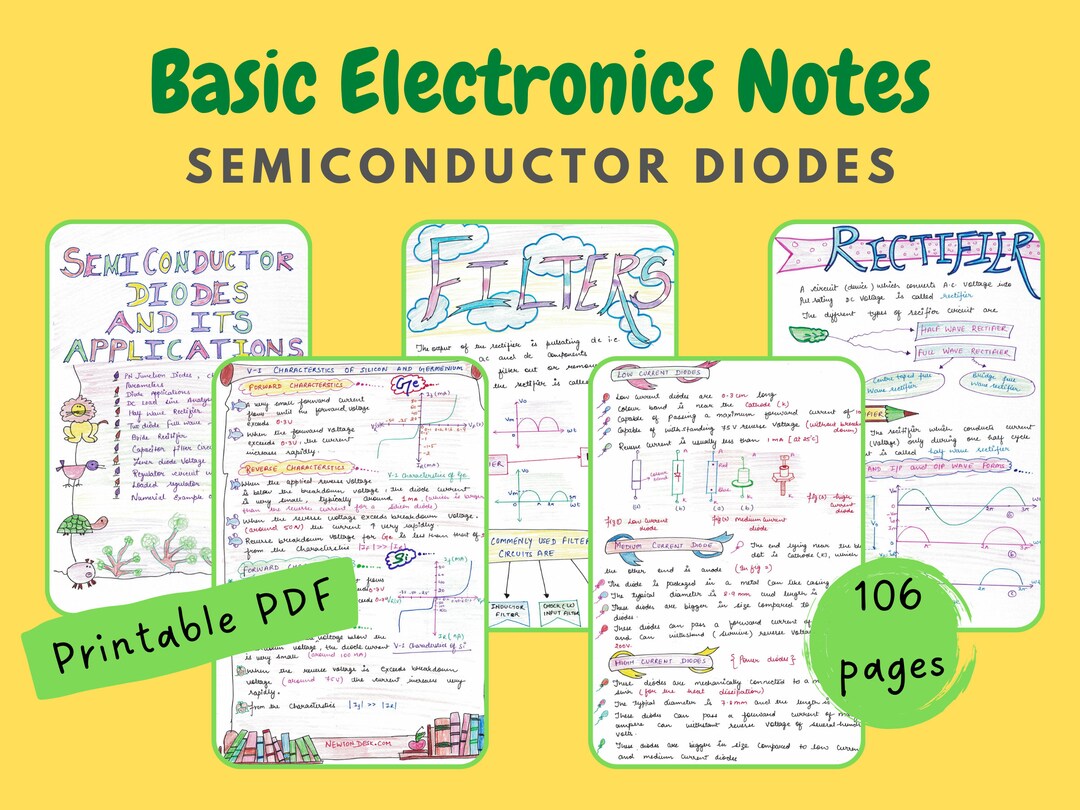 Basic Electronics Notes
SEMICONDUCTOR DIODES
SEMICONDUCTOR
DIODES
AND ITS
APPLICATIONS
PN Junction Diodes, C
Parameters
Diode Applications
DC Load Line Analys
Half Wave Rectifier
Two diode full wave
Capacitor filter
Zener diode Voltage
Regulator circuit
Loaded regulator
FILTERS
The output of the rectifier is pulsating dc i.e.
ac and dc components
filter out or remov
the rectifier is called
Vm
COMMONLY USED FILTER
CIRCUITS ARE
INDUCTOR
FILTER
CHOKE (L)
INPUT FILTER
RECTIFIER
A circuit (device) which converts A.C. Voltage into
pulsating DC Voltage is called rectifier
The different types of rectifier circuit are
HALF WAVE RECTIFIER
FULL WAVE RECTIFIER
Centre taped full
Wave rectifier
Bridge full
wave rectifier
The rectifier which conducts current
(voltage) only during one half cycle
is called half wave rectifier
AND I/P and O/P WAVE FORMS
V-I CHARACTERSTICS OF SILICON AND GERMENIUM
FORWARD CHARACTERSTICS
Ge
A very small forward current
flows until the forward voltage
exceeds 0.3V
When the forward voltage
exceeds 0.3V, the current
increases rapidly.
REVERSE CHARACTERSTICS
V-I characterstics of Ge
When the applied reverse voltage
is below the breakdown voltage, the diode current
is very small, typically around 1mA. (which is larger
than the reverse current for a silicon diode)
When the reverse voltage exceeds breakdown voltage.
(around 50V) the current ↑ very rapidly.
Reverse breakdown voltage for Ge is less than that of S
from the Characterstics
FORWARD
Si
voltage below the
voltage, the diode current
V-I Characterstics of Si
is very small (around 100 nA)
When the reverse voltage is exceeds breakdown
voltage (around 75V) the current increase very
rapidly.
from the Characterstics
NEWTONDESK.COM
LOW CURRENT DIODES
Low current diodes are 0.3 cm long
Colour band is near the cathode (K)
Capable of passing a maximum forward current of
Capable of withstanding 75V reverse voltage (without break
down)
Reverse current is usually less than 1mA [at 25°C]
fig(1) low current
diode
medium current
diode
high current
diode
MEDIUM CURRENT DIODE
The end lying near the
dot is Cathode (K), which
the other end is anode
The diode is packaged in a metal can like casing
The typical diameter is
These diodes are bigger in size compared to
diodes.
These diodes can pass a forward current of
and can withstand
reverse volta
200V.
HIGH CURRENT DIODES
{Power diodes}
These diodes are mechanically connected to a
sink (for the heat dissipation)
The typical diameter is 7.8mm and the length is
These diodes can pass a forward current of
ampere can withstand reverse voltage of several hund
volts.
These diodes are bigger in size compared to low curren
and medium current diodes
Printable PDF
106
pages